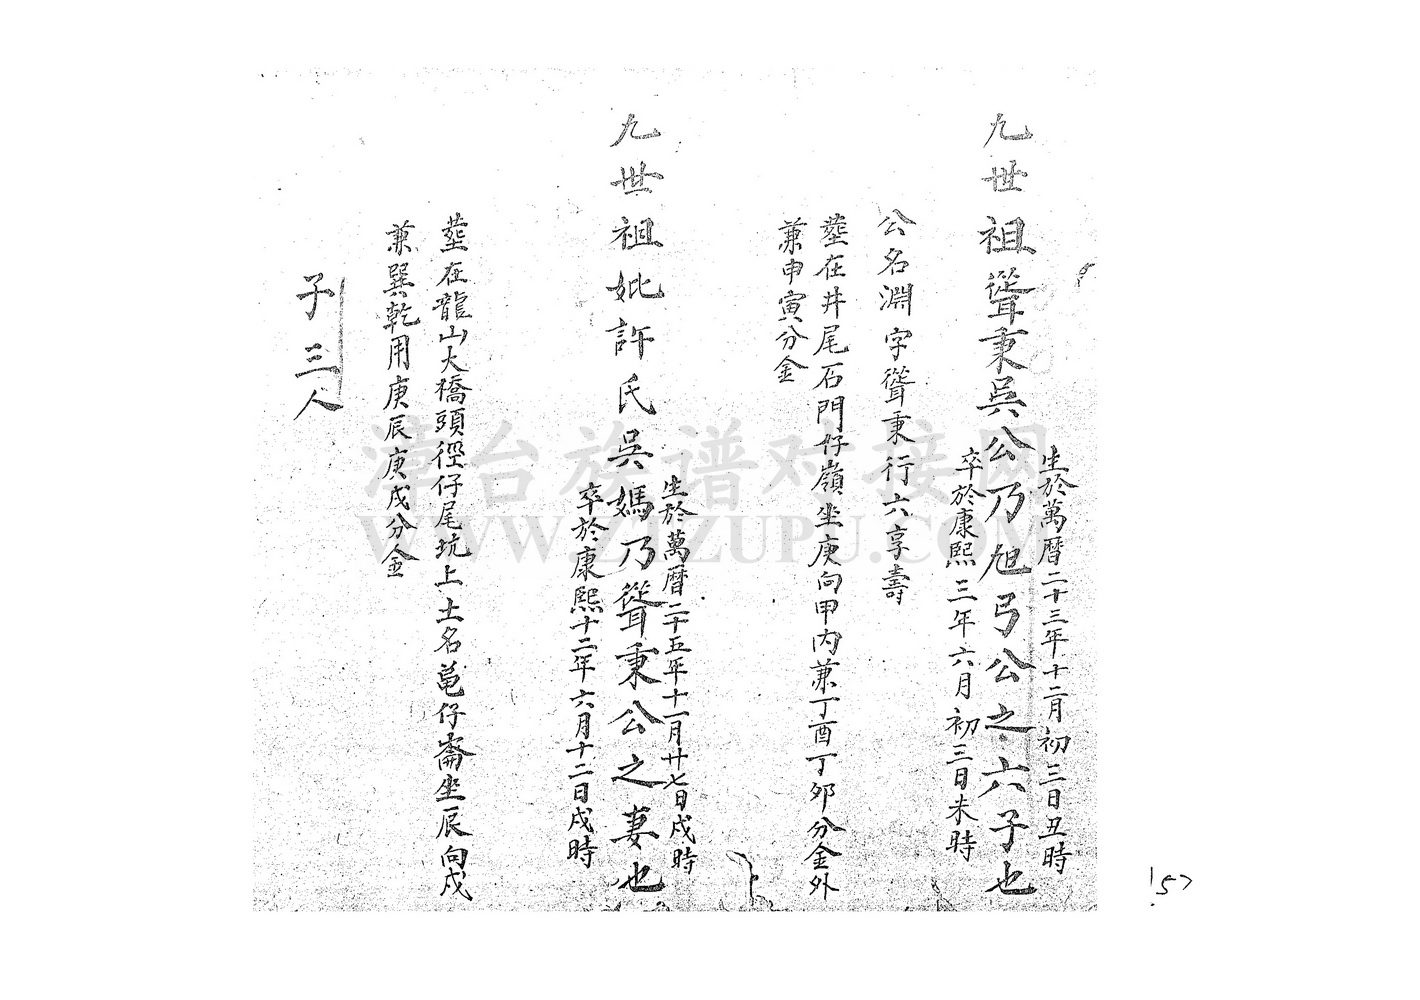 生於萬曆二十三年十二月初三日丑時
九世祖聳秉吳公乃旭弓公之六子也
卒於康熙三年六月初三日未時
公名淵字聳秉行六享壽
塟在井尾石門好嶺坐庚向甲內兼丁酉丁卯分金外
兼申寅分金
生於萬曆二十五年十一月廿七日戌時
九世祖妣許氏吳媽乃聳秉公之妻也
卒於康熙十二年六月十二日戌時
塟在龍山大橋頭徑仔尾坑上土名亀仔崙坐辰向戌
兼巽乾用庚辰庚戌分金
子三人
漳台族谱对接网
WWW.ZTZUPU.COM
157